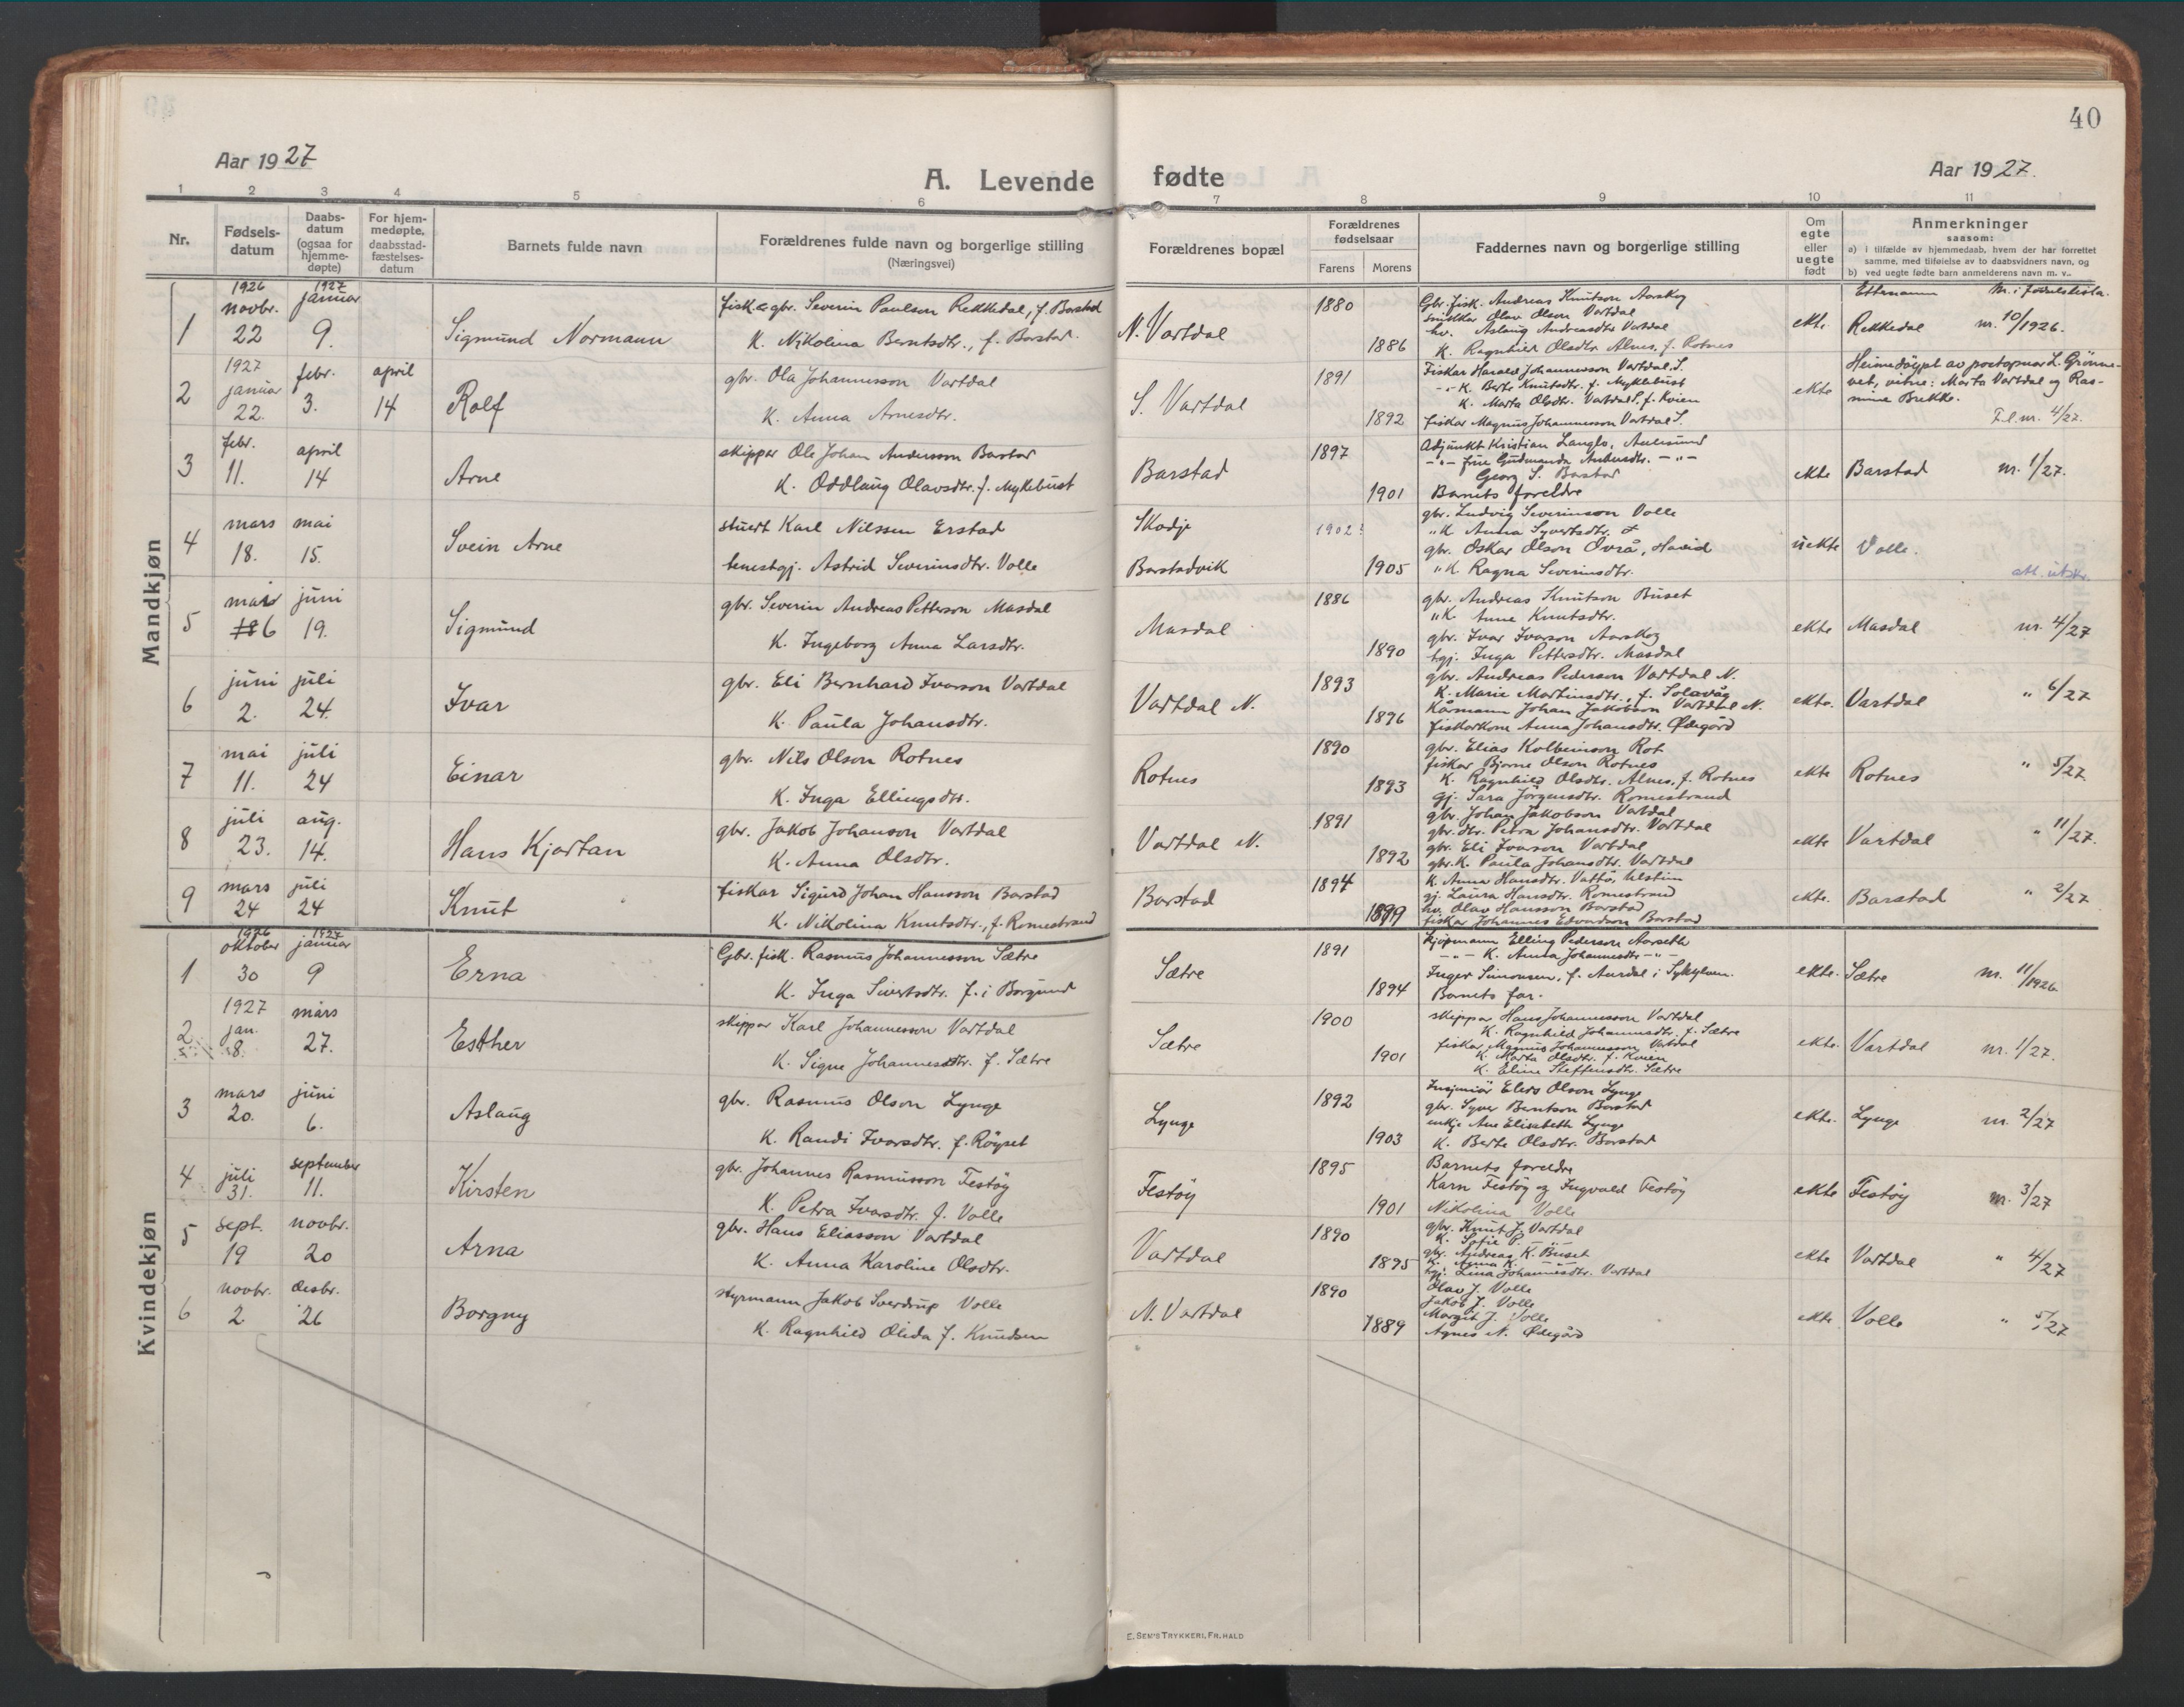 40
Aar 1927
A. Levende fødte
Aar 1927.
1 2 3 4 5 6 7 8 9 10 11
Nr.
Fødsels-
datum
Daabs-
datum
(ogsaa for
hjemme-
døpte)
For hjem-
medøpte,
daabsstad-
fæstelses-
datum
Barnets fulde navn
Forældrenes fulde navn og borgerlige stilling
(Næringsvei)
Forældrenes bopæl
Forældrenes
fødselsaar
Farens
Morens
Faddernes navn og borgerlige stilling
Om
egte
eller
uegte
født
Anmerkninger
saasom:
a) i tilfælde av hjemmedaab, hvem der har forrettet
samme, med tilføielse av to daabsvidners navn, og
b) ved uegte fødte barn anmelderens navn m. v..
Mandkjøn
1
1926
novbr.
22
1927
januar
9.
Sigmund Normann
fisk. & gbr. Severin Paulson Rekkedal, f. Barstad
K. Nikolina Berntsdtr., f. Barstad.
N. Vartdal
1880
1886
Gbr. fisk. Andreas Knutson Aarskog
snikkar Olav Olson Vartdal
hv. Aslaug Andreasdtr Vartdal
K. Ragnhild Olsdtr. Alnes, f. Rotnes
ekte
Etternamn Nr. i fødselslista.
Rekkedal nr. 10/1926.
2
1927
januar
22.
febr.
3.
april
14
Rolf
gbr. Ola Johannesson Vartdal
K. Anna Arnesdtr.
S. Vartdal
1891
1892
Fiskar Harald Johannesson Vartdal, S.
-"- K. Berte Knutsdtr. f. Myklebust
K. Marta Olsdtr. Vartdal S. f. Kvien
fiskar Magnus Johannesson Vartdal S.
ekte
Heimedøypt av postopnar L. Grønne-
vet, vitne: Marta Vartdal og Ras-
mine Brekke.
F.l. nr. 4/27.
3
febr.
11.
april
14
Arne
skippar Ole Johan Anderson Barstad
K. Oddlaug Olavsdtr. f. Myklebust
Barstad
1897
1901
Adjunkt Kristian Langlo, Aalesund
-"- frue Gudmunda -"-
Georg S. Barstad
Barnets foreldre
ekte
Barstad nr. 1/27.
4
mars
18.
mai
15.
Svein Arne
stuert Karl Nilssen Erstad
tenestgj. Astrid Severinsdtr. Volle
Skodje
Barstadvik
1902
1905
gbr. Ludvig Severinson Volle
"K Anna Syvertsdtr.
gbr. Oskar Olson Ovrå, Havid
"K. Ragna Severinsdtr.
uekte
Volle.
att. utskr.
5
mai
6
juni
19.
Sigmund
gbr. Severin Andreas Petterson Masdal
K. Ingeborg Anna Larsdtr.
Masdal
1886
1890
gbr. Andreas Knutson Buset
"K Anne Knutsdtr.
gbr. Ivar Ivarson Aarskog
tgj. Inga Pettersdtr. Masdal
ekte
Masdal nr. 4/27
6
juni
2.
juli
24.
Ivar
gbr. Eli Bernhard Ivarson Vartdal
K. Paula Johansdtr.
Vartdal N.
1893
1896
gbr. Andreas Pederson Vartdal N.
K. Marie Martinsdtr., f. Solavåg
Kårmann Johan Jakobson Vartdal N.
fiskarkone Anna Johansdtr. Ødegård
ekte.
Vartdal " 6/27
7
mai
11.
juli
24
Einar
gbr. Nils Olson Rotnes
K. Inga Ellingsdtr.
Rotnes
1890
1893
gbr. Elias Kolbeinson Rot
fiskar Bjarne Olson Rotnes
K. Ragnhild Olsdtr. Alnes, f. Rotnes
gj. Sara Jørgensdtr. Romestrand
ekte
Rotnes " 5/27
8
juli
23.
aug.
14.
Hans Kjartan
gbr. Jakob Johanson Vartdal
K. Anna Olsdtr.
Vartdal N.
1891
1892
gbr. Johan Jakobson Vartdal
gbr. dtr. Petra Johansdtr. Vartdal
gbr. Eli Ivarson Vartdal
gbr. K. Paula Johansdtr. Vartdal
ekte
Vartdal " 11/27.
9
mars
24
juli
24
Knut
fiskar Sigurd Johan Hansson Barstad
K. Nikolina Knutsdtr., f. Romestrand
Barstad
1894
1899
K. Anna Hansdtr. Vattø, Ulstein
gj. Laura Hansdtr. Romestrand
hv. Olav Hansson Barstad
fiskar Johannes Edvardson Barstad
ekte.
Barstad " 2/27
Kvindekjøn
1
1926
oktober
30
1927
januar
9
Erna
Gbr. fisk. Rasmus Johannesson Sætre
K. Inga Sivertsdtr. f. i Borgund
Sætre
1891
1894
kjøpmann Elling Pederson Aarseth
-"- K. Anna Johannesdtr -"-
Inger Simonsen, f. Aurdal i Sykylven.
Barnets far.
ekte.
Sætre nr. 11/1926
2
1927
jan.
8.
mars
27.
Esther
skippar Karl Johannesson Vartdal
K. Signe Johannesdtr. f. Sætre
Sætre
1900
1901
skippar Hans Johannesson Vartdal
K. Ragnhild Johannesdtr. f. Sætre
fiskar Magnus Johannesson Vartdal
K. Marta Olsdtr. f. Kvien
K. Eline Steffensdtr. Sætre
ekte.
Vartdal nr. 1/27.
3
mars
20.
juni
6.
Aslaug
gbr. Rasmus Olson Lynge
K. Randi Ivarsdtr. f. Røyset
Lynge
1892
1903
Insjeniør Elers Olson Lynge
gbr. Syver Berntson Barstad
enkje Ane Elisabeth Lynge
K. Berte Olsdtr. Barstad
ekte.
Lynge nr. 2/27
4
juli
31.
september
11.
Kirsten
gbr. Johannes Rasmusson Festøy
K. Petra Ivarsdtr. f. Volle
Festøy
1895
1901
Barnets foreldre
Karn Festøy og Ingvald Festøy
Nikolina Volle
ekte
Festøy nr. 3/27
5
sept.
19
novbr.
20
Arna
gbr. Hans Eliasson Vartdal
K. Anna Karoline Olsdtr.
Vartdal
1890
1895
gbr. Knut J. Vartdal
K. Sofie P. -"-
gbr. Andreas K. Buset
K. Anna K. -"-
tgj. Lina Johannesdtr. Vartdal
ekte
Vartdal " 4/27
6
novbr.
2
desbr.
26
Borgny
styrmann Jakob Sverdrup Volle
K. Ragnhild Olida f. Knudsen
N. Vartdal
1890
1889
Olav J. Volle
Jakob J. Volle
Margit J. Volle
Agnes N. Ødegård
ekte
Volle " 5/27
E. SEM'S TRYKKERI, FR. HALD